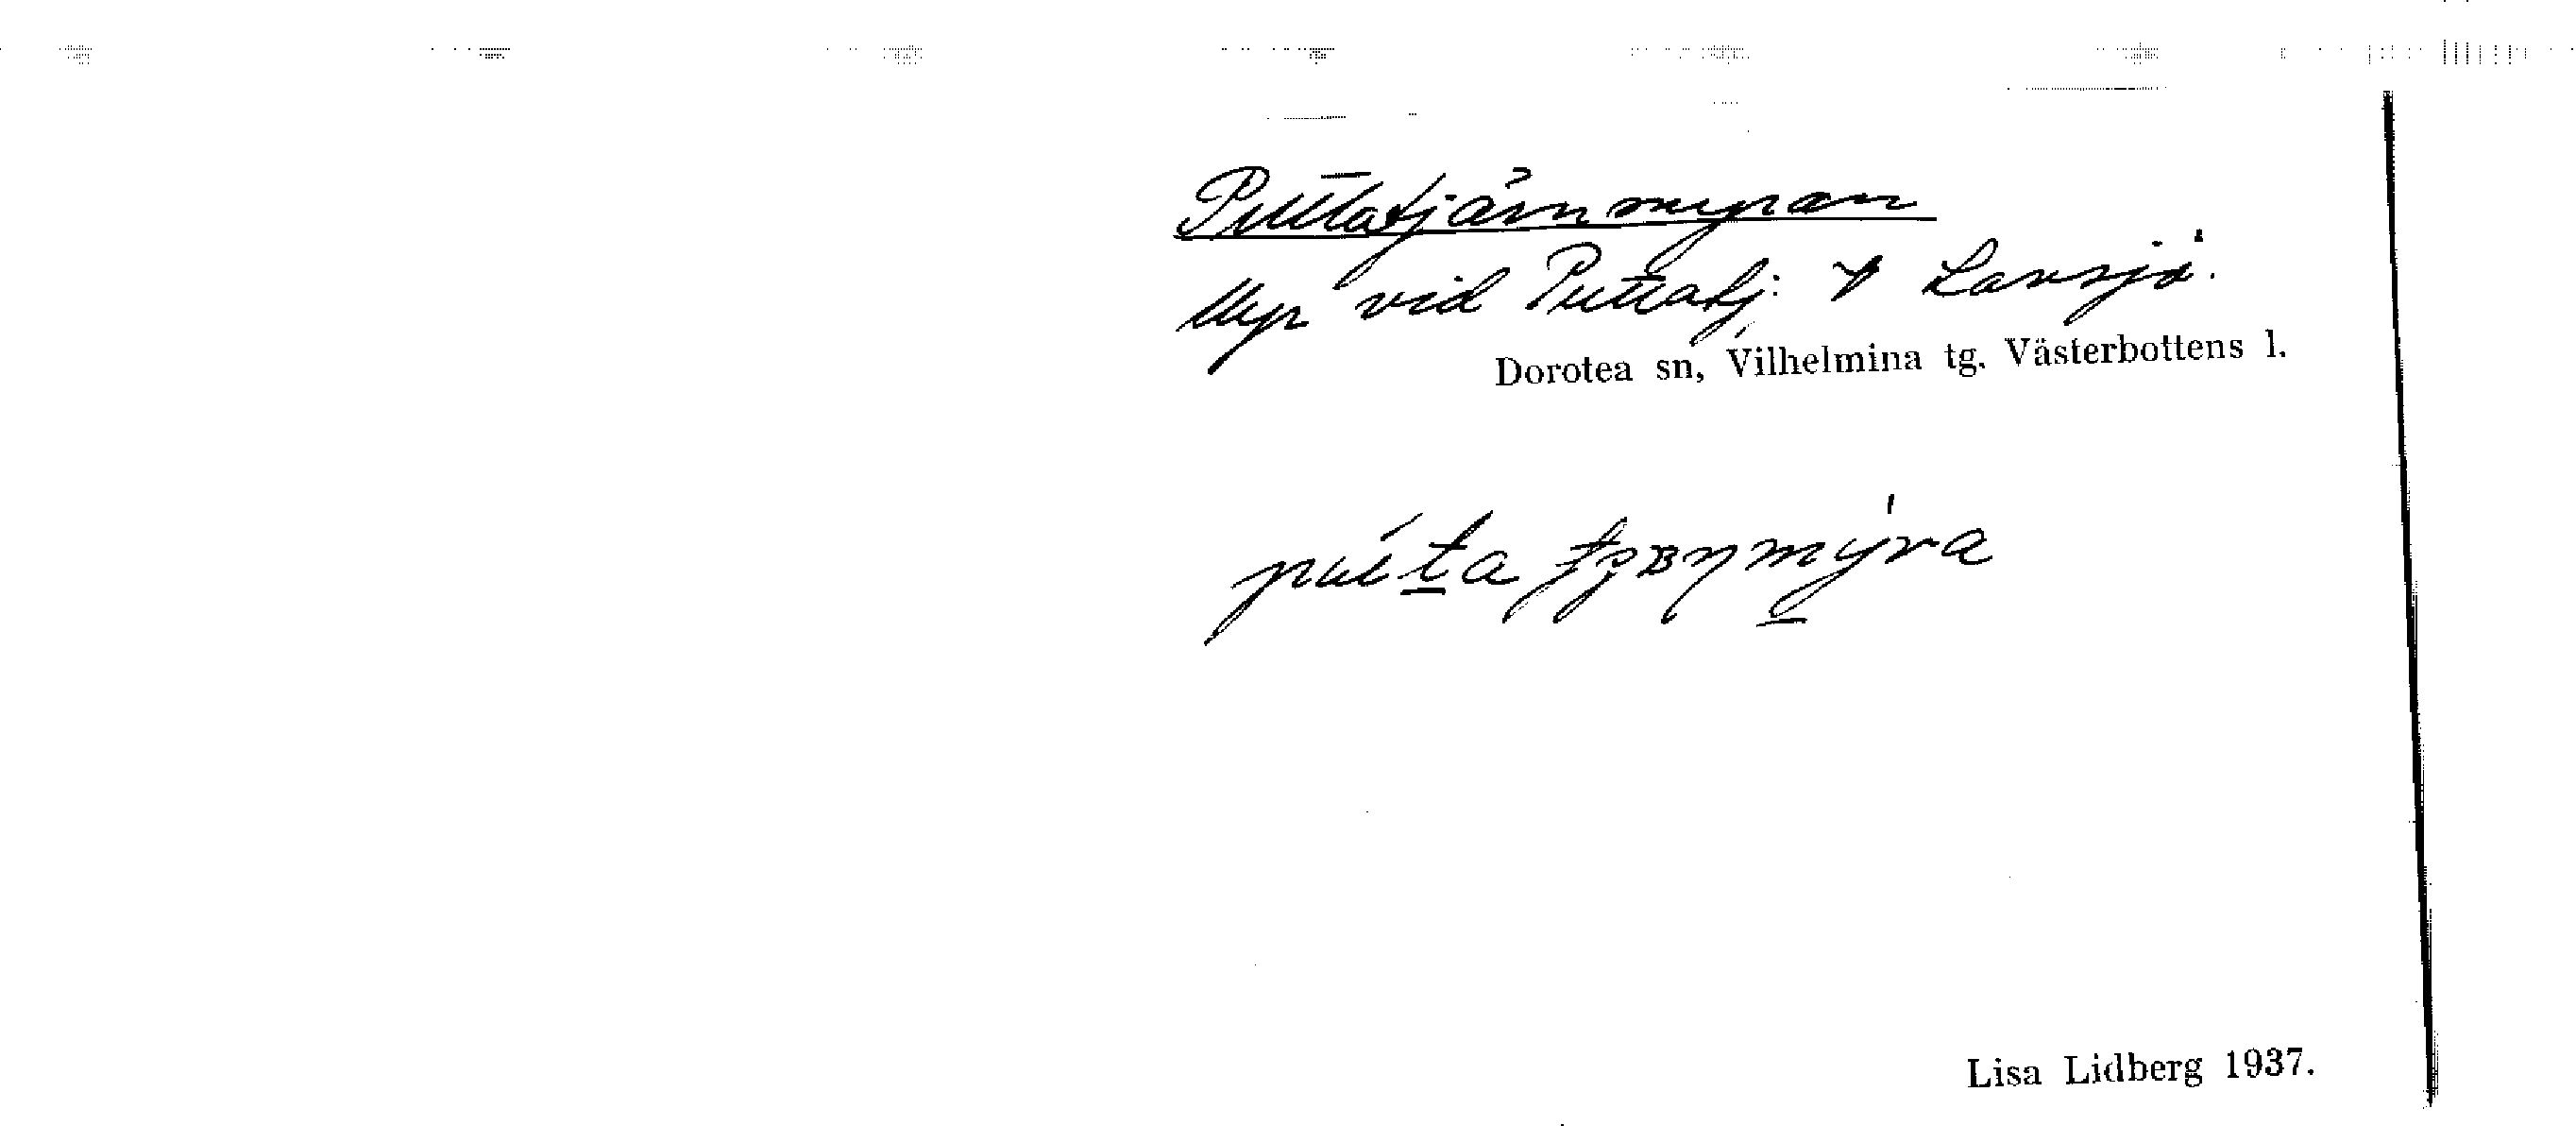 Puttatjärnmyran
Myr vid Puttatj. V Lavsjö.
Dorotea sn, Vilhelmina tg. Västerbottens l.
Lisa Lidberg 1937.